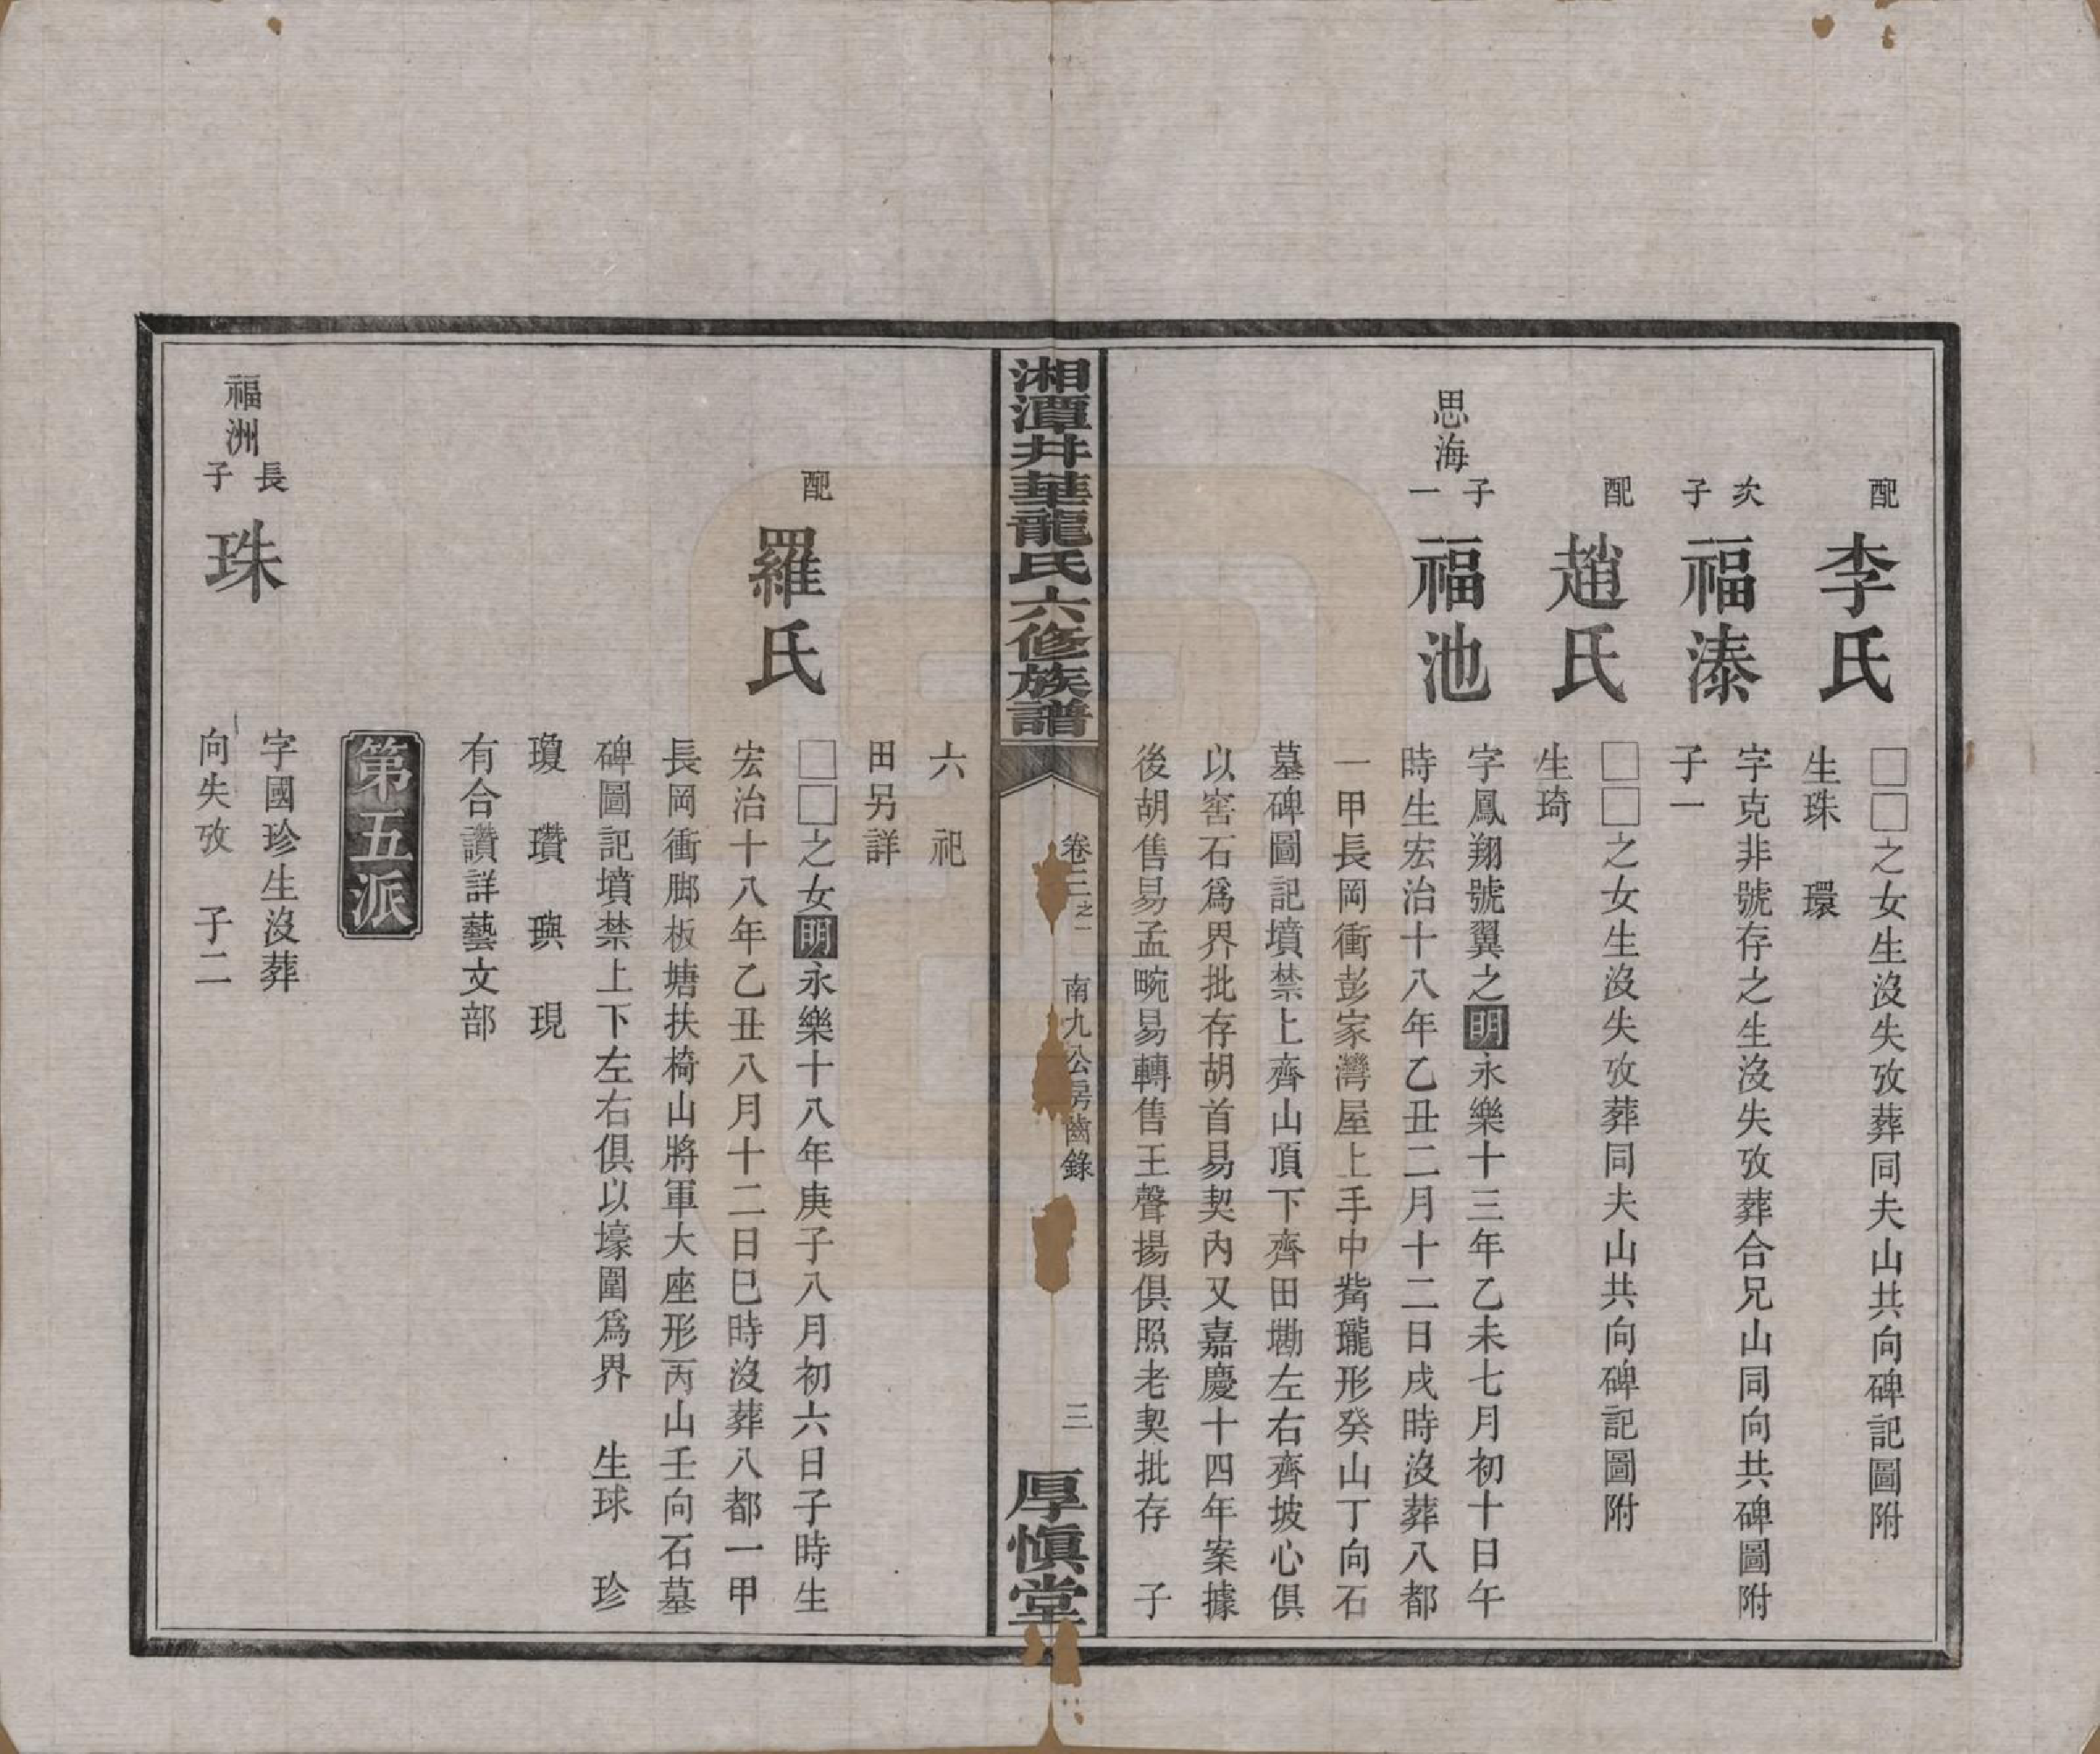 配
李氏
□□之女生沒失攷葬同夫山共向碑記圖附
生珠　環
次子
福溱
字克非號存之生沒失攷葬合兄山同向共碑圖附
子一
配
趙氏
□□之女生沒失攷葬同夫山共向碑記圖附
生琦
思海子一
福池
字鳳翔號翼之明永樂十三年乙未七月初十日午
時生宏治十八年乙丑二月十二日戌時沒葬八都
一甲長岡衝彭家灣屋上手中黹瓏形癸山丁向石
墓碑圖記墳禁上齊山頂下齊田墈左右齊坡心俱
以窖石爲界批存胡首易契內又嘉慶十四年案據
後胡售易孟畹易轉售王聲揚俱照老契批存　子
湘潭井華龍氏六修族譜
卷三之一　南九公房齒錄
三
厚愼堂
六　祀
田另詳
配
羅氏
□□之女明永樂十八年庚子八月初六日子時生
宏治十八年乙丑八月十二日巳時沒葬八都一甲
長岡衝脚板塘扶椅山將軍大座形丙山壬向石墓
碑圖記墳禁上下左右俱以壕圍爲界　生球　珍
瓊　瓚　璵　現
有合讚詳藝文部
第五派
福洲長子
珠
字國珍生沒葬
向失攷　子二